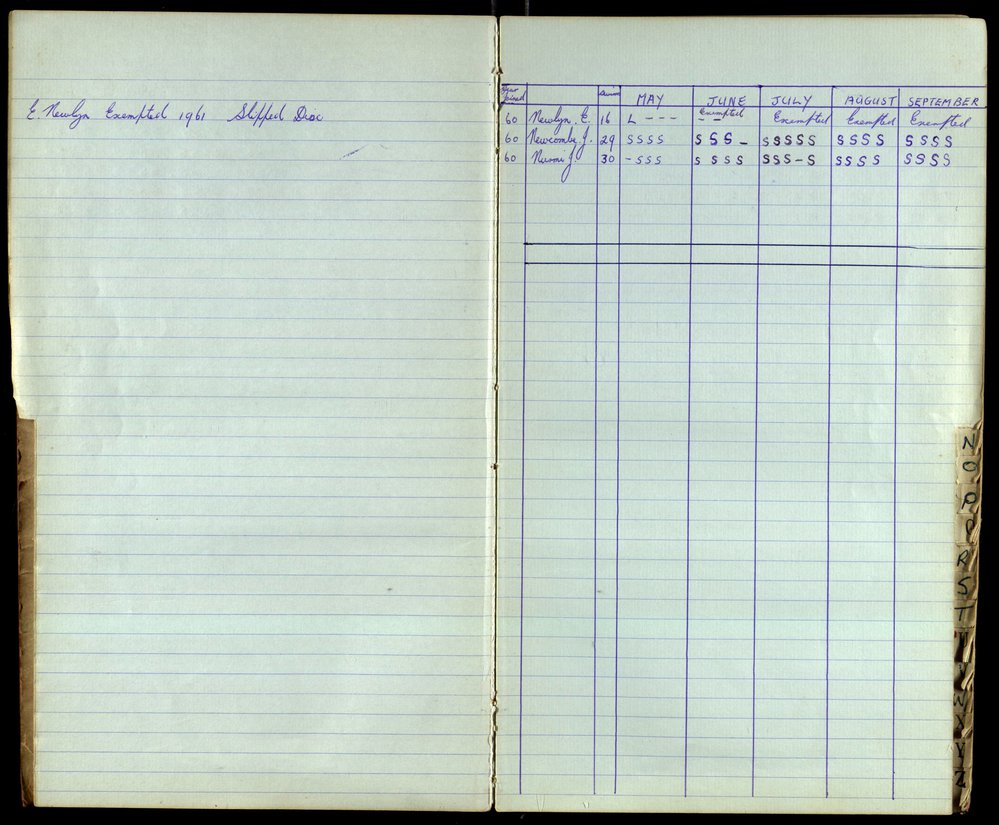 E. Newlyn Exempted 1961 Slipped Disc
Year Joined MAY JUNE JULY AUGUST SEPTEMBER
60 Newlyn, E. 16 L - - - - - Exempted Exempted Exempted Exempted
60 Newcombe, J. 29 S S S S S S S - S S S S S S S S S S S S S
60 J. 30 - S S S S S S S S S S - S S S S S S S S S
N
O
P
R
S
T
W
X
Y
Z